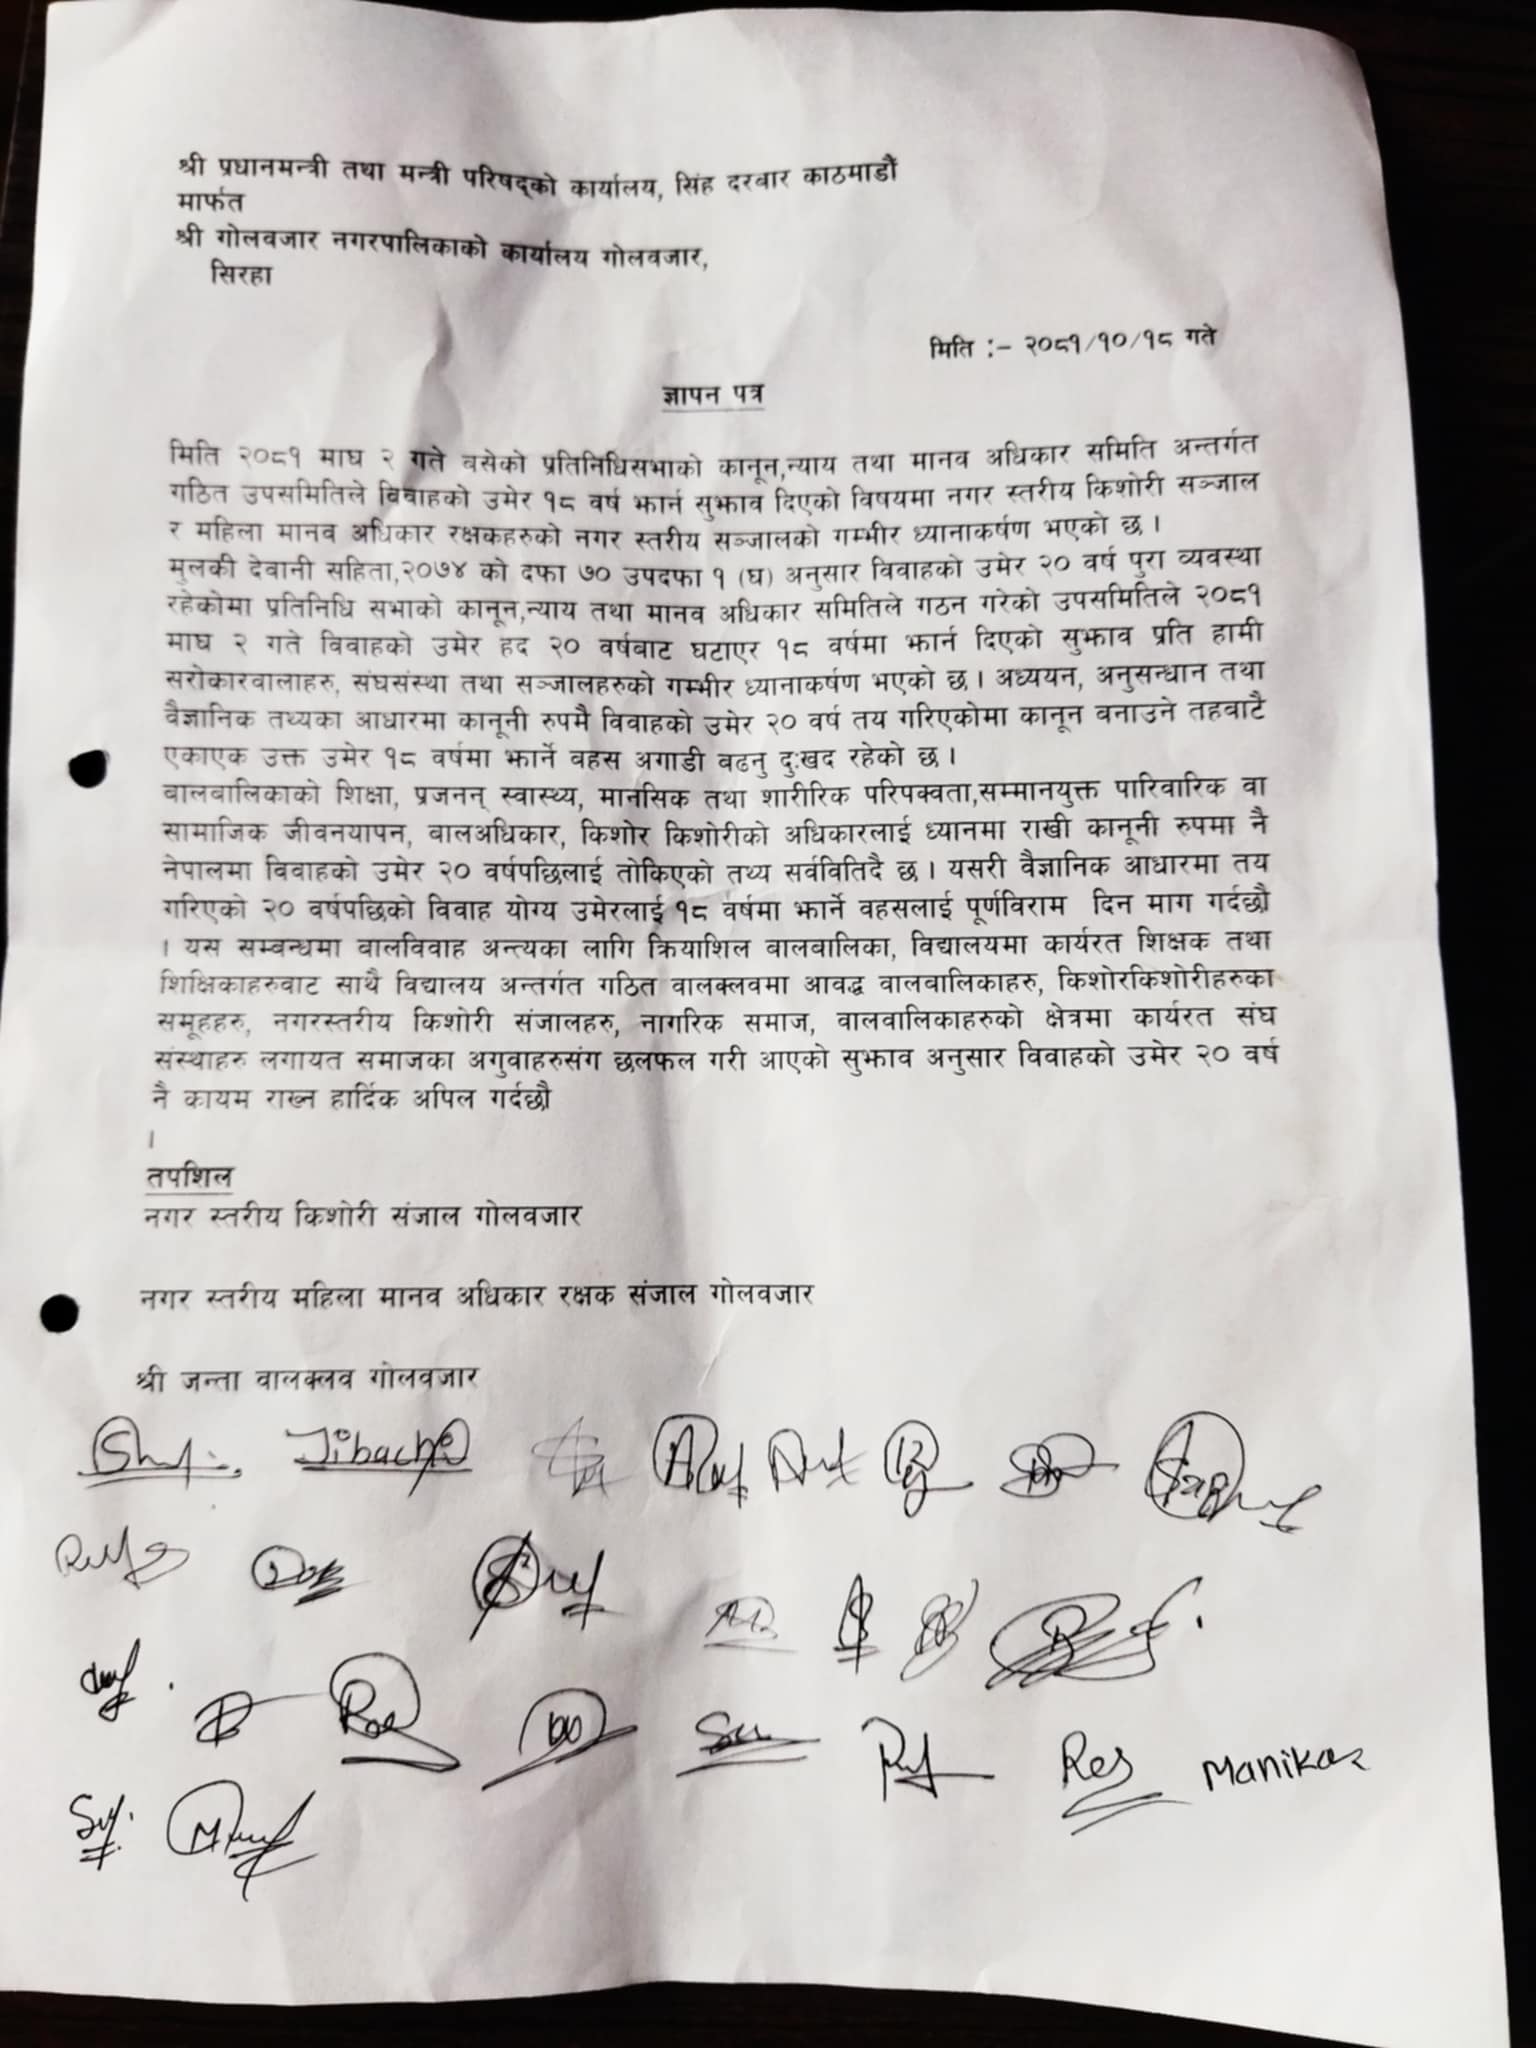 श्री प्रधानमन्त्री तथा मन्त्री परिषद्को कार्यालय, सिंह दरबार काठमाडौं
मार्फत
श्री गोलवजार नगरपालिकाको कार्यालय गोलवजार,
सिरहा
मिति :- २०८१/१०/१८ गते
ज्ञापन पत्र
मिति २०८१ माघ २ गते वसेको प्रतिनिधिसभाको कानून,न्याय तथा मानव अधिकार समिति अन्तर्गत
गठित उपसमितिले विवाहको उमेर १८ वर्ष झार्न सुझाव दिएको विषयमा नगर स्तरीय किशोरी सञ्जाल
र महिला मानव अधिकार रक्षकहरुको नगर स्तरीय सञ्जालको गम्भीर ध्यानाकर्षण भएको छ ।
मुलकी देवानी सहिता,२०७४ को दफा ७० उपदफा १ (घ) अनुसार विवाहको उमेर २० वर्ष पुरा व्यवस्था
रहेकोमा प्रतिनिधि सभाको कानून,न्याय तथा मानव अधिकार समितिले गठन गरेको उपसमितिले २०८१
माघ २ गते विवाहको उमेर हद २० वर्षबाट घटाएर १८ वर्षमा झार्न दिएको सुझाव प्रति हामी
सरोकारवालाहरु, संघसंस्था तथा सञ्जालहरुको गम्भीर ध्यानाकर्षण भएको छ । अध्ययन, अनुसन्धान तथा
वैज्ञानिक तथ्यका आधारमा कानूनी रुपमै विवाहको उमेर २० वर्ष तय गरिएकोमा कानून बनाउने तहबाटै
एकाएक उक्त उमेर १८ वर्षमा झार्ने वहस अगाडी बढनु दुःखद रहेको छ ।
बालबालिकाको शिक्षा, प्रजनन् स्वास्थ्य, मानसिक तथा शारीरिक परिपक्वता,सम्मानयुक्त पारिवारिक वा
सामाजिक जीवनयापन, बालअधिकार, किशोर किशोरीको अधिकारलाई ध्यानमा राखी कानूनी रुपमा नै
नेपालमा विवाहको उमेर २० वर्षपछिलाई तोकिएको तथ्य सर्ववितिदै छ । यसरी वैज्ञानिक आधारमा तय
गरिएको २० वर्षपछिको विवाह योग्य उमेरलाई १८ वर्षमा झार्ने वहसलाई पूर्णविराम दिन माग गर्दछौ
। यस सम्बन्धमा बालविवाह अन्त्यका लागि क्रियाशिल बालबालिका, विद्यालयमा कार्यरत शिक्षक तथा
शिक्षिकाहरुवाट साथै विद्यालय अन्तर्गत गठित वालक्लवमा आवद्ध वालवालिकाहरु, किशोरकिशोरीहरुका
समूहहरु, नगरस्तरीय किशोरी संजालहरु, नागरिक समाज, वालवालिकाहरुको क्षेत्रमा कार्यरत संघ
संस्थाहरु लगायत समाजका अगुवाहरुसंग छलफल गरी आएको सुझाव अनुसार विवाहको उमेर २० वर्ष
नै कायम राख्न हार्दिक अपिल गर्दछौ
।
तपशिल
नगर स्तरीय किशोरी संजाल गोलवजार
नगर स्तरीय महिला मानव अधिकार रक्षक संजाल गोलवजार
श्री जन्ता वालक्लव गोलवजार
Jibachh
Manika